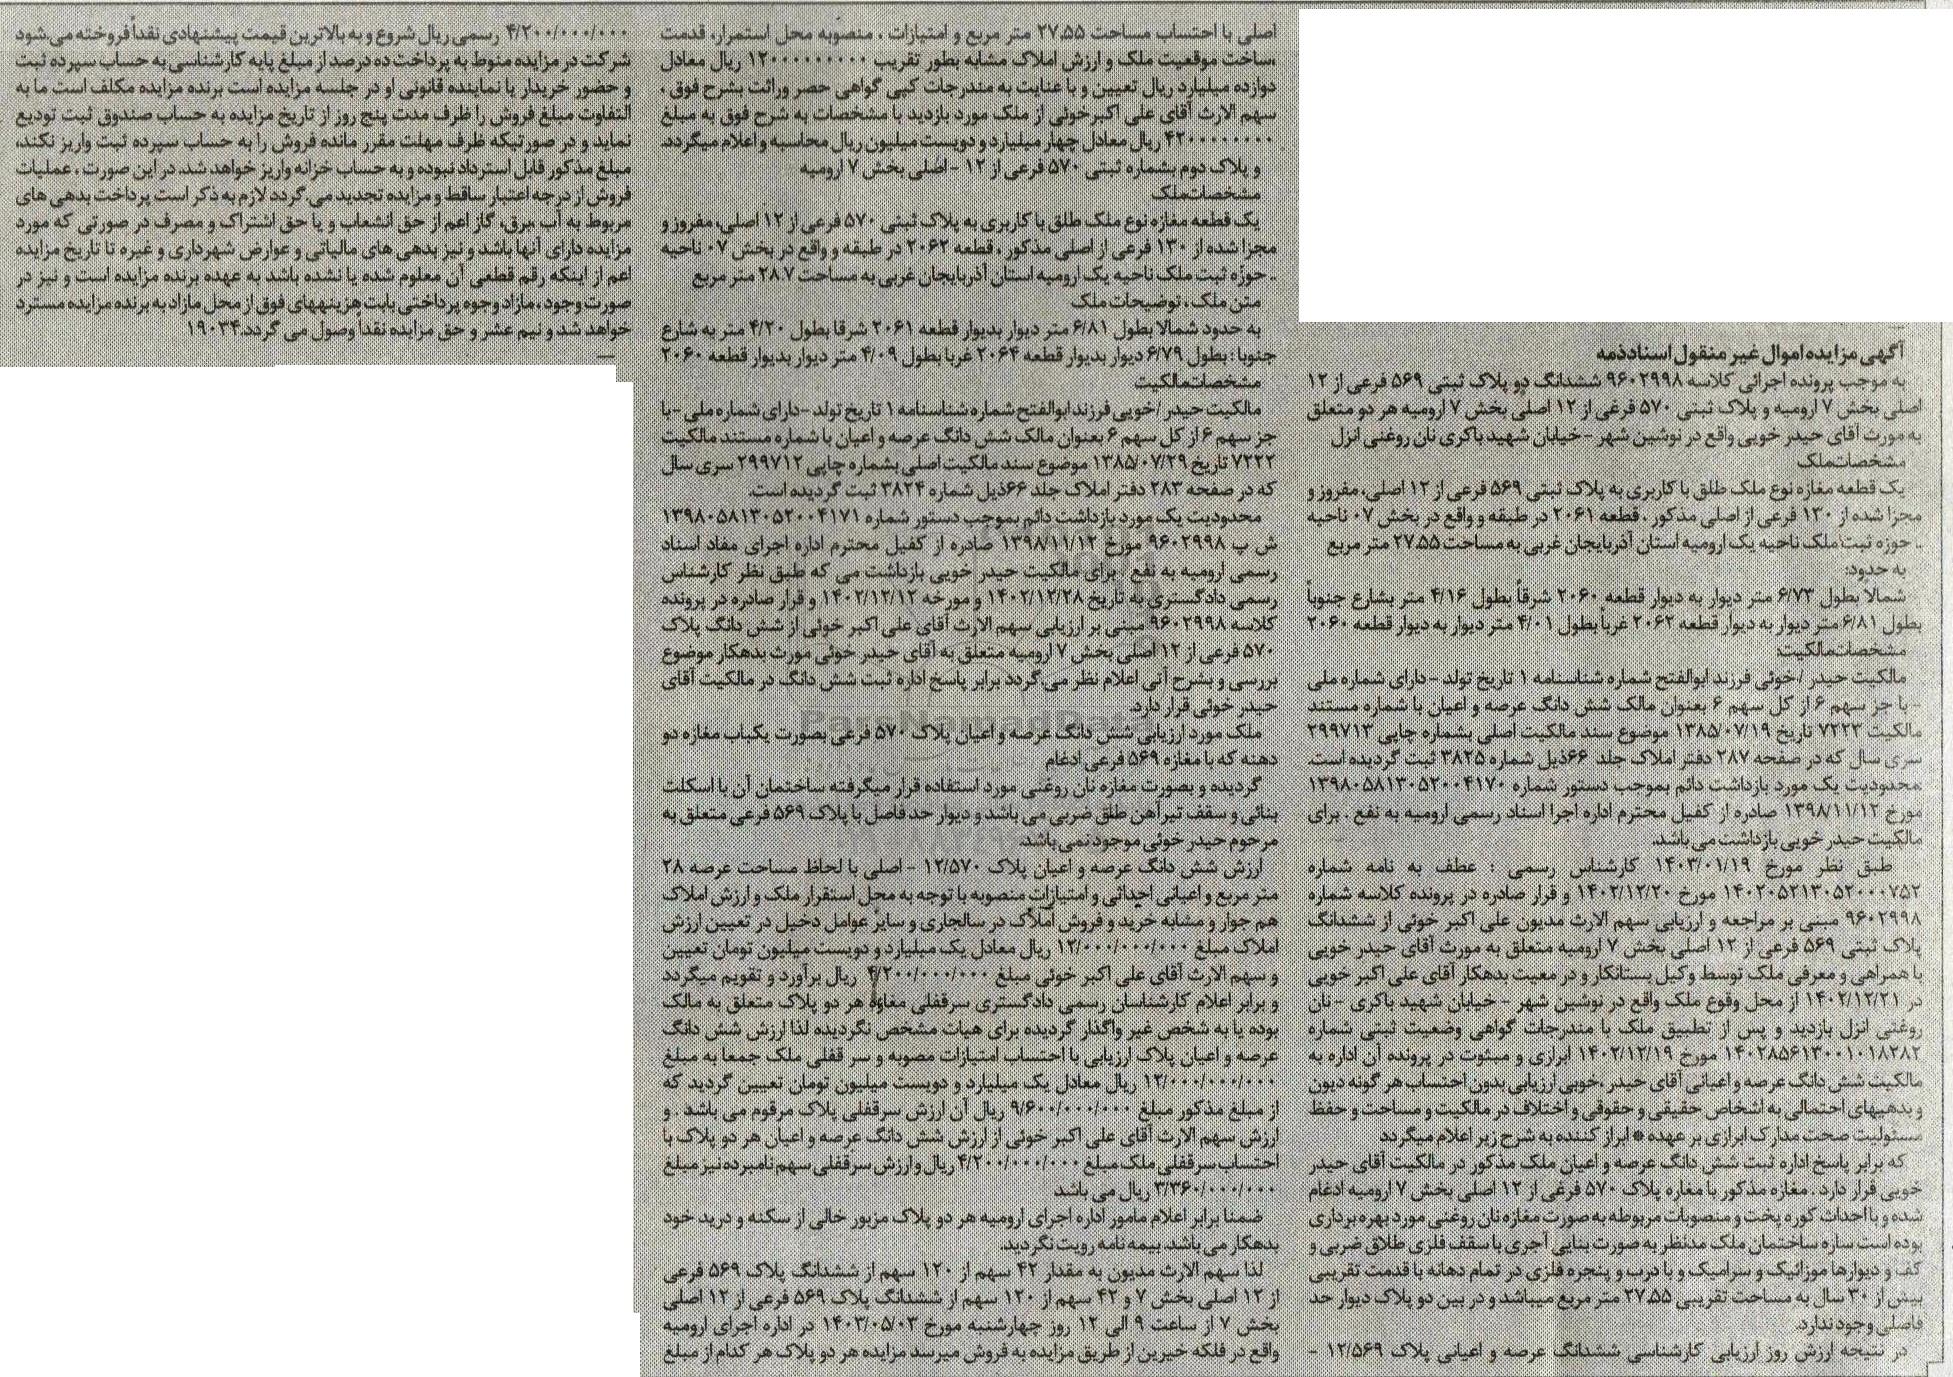 آگهی مزایده اموال غیر منقول اسناد ذمه
به موجب پرونده اجرائی کلاسه ۹۶۰۲۹۹۸ ششدانگ دو پلاک ثبتی ۵۶۹ فرعی از ۱۲
اصلی بخش ۷ ارومیه و پلاک ثبتی ۵۷۰ فرعی از ۱۲ اصلی بخش ۷ ارومیه هر دو متعلق
به مورث آقای حیدر خویی واقع در نوشین شهر - خیابان شهید باکری نان روغنی انزل
مشخصات‌ملک
یک قطعه مغازه نوع ملک طلق با کاربری به پلاک ثبتی ۵۶۹ فرعی از ۱۲ اصلی، مفروز و
مجزا شده از ۱۳۰ فرعی از اصلی مذکور . قطعه ۲۰۶۱ در طبقه و واقع در بخش ۰۷ ناحیه
. حوزه ثبت ملک ناحیه یک ارومیه استان آذربایجان غربی به مساحت ۲۷.۵۵ متر مربع
به حدود:
شمالاً بطول ۶/۷۳ متر دیوار به دیوار قطعه ۲۰۶۰ شرقاً بطول ۴/۱۶ متر بشارع جنوباً
بطول ۶/۸۱ متر دیوار به دیوار قطعه ۲۰۶۲ غرباً بطول ۴/۰۱ متر دیوار به دیوار قطعه ۲۰۶۰
مشخصات‌مالکیت:
مالکیت حیدر /خوئی فرزند ابوالفتح شماره شناسنامه ۱ تاریخ تولد - دارای شماره ملی
- با جز سهم ۶ از کل سهم ۶ بعنوان مالک شش دانگ عرصه و اعیان با شماره مستند
مالکیت ۷۲۲۳ تاریخ ۱۳۸۵/۰۷/۱۹ موضوع سند مالکیت اصلی بشماره چاپی ۲۹۹۷۱۳
سری سال که در صفحه ۲۸۷ دفتر املاک جلد ۶۶ذیل شماره ۳۸۲۵ ثبت گردیده است.
محدودیت یک مورد بازداشت دائم بموجب دستور شماره ۱۳۹۸۰۵۸۱۳۰۵۲۰۰۴۱۷۰
مورخ ۱۳۹۸/۱۱/۱۲ صادره از کفیل محترم اداره اجرا اسناد رسمی ارومیه به نفع . برای
مالکیت حیدر خویی بازداشت می باشد.
طبق نظر مورخ ۱۴۰۳/۰۱/۱۹ کارشناس رسمی : عطف به نامه شماره
۱۴۰۲۰۵۲۱۳۰۵۲۰۰۰۷۵۲ مورخ ۱۴۰۲/۱۲/۲۰ و قرار صادره در پرونده کلاسه شماره
۹۶۰۲۹۹۸ مبنی بر مراجعه و ارزیابی سهم الارث مدیون علی اکبر خوئی از ششدانگ
پلاک ثبتی ۵۶۹ فرعی از ۱۲ اصلی بخش ۷ ارومیه متعلق به مورث آقای حیدر خویی
با همراهی و معرفی ملک توسط وکیل بستانکار و در معیت بدهکار آقای علی اکبر خویی
در ۱۴۰۲/۱۲/۲۱ از محل وقوع ملک واقع در نوشین شهر - خیابان شهید باکری - نان
روغنی انزل بازدید و پس از تطبیق ملک با مندرجات گواهی وضعیت ثبتی شماره
۱۴۰۲۸۵۶۱۳۰۰۱۰۱۸۲۸۲ مورخ ۱۴۰۲/۱۲/۱۹ ابرازی و مبثوت در پرونده آن اداره به
مالکیت شش دانگ عرصه و اعیانی آقای حیدر ،خویی ارزیابی بدون احتساب هر گونه دیون
و بدهیهای احتمالی به اشخاص حقیقی و حقوقی و اختلاف در مالکیت و مساحت و حفظ
مسئولیت صحت مدارک ابرازی بر عهده * ابراز کننده به شرح زیر اعلام میگردد
که برابر پاسخ اداره ثبت شش دانگ عرصه و اعیان ملک مذکور در مالکیت آقای حیدر
خویی قرار دارد . مغازه مذکور با مغاره پلاک ۵۷۰ فرعی از ۱۲ اصلی بخش ۷ ارومیه ادغام
شده و با احداث کوره پخت و منصوبات مربوطه به صورت مغازه نان روغنی مورد بهره برداری
بوده است سازه ساختمان ملک مدنظر به صورت بنایی آجری با سقف فلزی طلاق ضربی و
کف و دیوارها موزائیک و سرامیک و با درب و پنجره فلزی در تمام دهانه با قدمت تقریبی
بیش از ۳۰ سال به مساحت تقریبی ۲۷.۵۵ متر مربع میباشد و در بین دو پلاک دیوار حد
فاصلی وجود ندارد.
در نتیجه ارزش روز ارزیابی کارشناسی ششدانگ عرصه و اعیانی پلاک ۱۲/۵۶۹ -
اصلی با احتساب مساحت ۲۷.۵۵ متر مربع و امتیازات . منصوبه محل استمرار، قدمت
،ساخت موقعیت ملک و ارزش املاک مشابه بطور تقریب ۱۲۰۰۰۰۰۰۰۰۰ ریال معادل
دوازده میلیارد ریال تعیین و با عنایت به مندرجات کپی گواهی حصر وراثت بشرح فوق ،
سهم الارث آقای علی اکبر خوئی از ملک مورد بازدید با مشخصات به شرح فوق به مبلغ
۴۲۰۰۰۰۰۰۰۰ ریال معادل چهار میلیارد و دویست میلیون ریال محاسبه و اعلام میگردد.
و پلاک دوم بشماره ثبتی ۵۷۰ فرعی از ۱۲ - اصلی بخش ۷ ارومیه
مشخصات‌ملک
یک قطعه مغازه نوع ملک طلق با کاربری به پلاک ثبتی ۵۷۰ فرعی از ۱۲ اصلی، مفروز و
مجزا شده از ۱۳۰ فرعی از اصلی مذکور . قطعه ۲۰۶۲ در طبقه و واقع در بخش ۰۷ ناحیه
. حوزه ثبت ملک ناحیه یک ارومیه استان آذربایجان غربی به مساحت ۲۸.۷ متر مربع
متن ملک ، توضیحات ملک
به حدود شمالا بطول ۶/۸۱ متر دیوار بدیوار قطعه ۲۰۶۱ شرقا بطول ۴/۲۰ متر به شارع
جنوبا : بطول ۶/۷۹ دیوار بدیوار قطعه ۲۰۶۴ غربا بطول ۴/۰۹ متر دیوار بدیوار قطعه ۲۰۶۰
مشخصات‌مالکیت
مالکیت حیدر /خویی فرزند ابوالفتح شماره شناسنامه ۱ تاریخ تولد - دارای شماره ملی - با
جز سهم ۶ از کل سهم ۶ بعنوان مالک شش دانگ عرصه و اعیان با شماره مستند مالکیت
۷۲۲۲ تاریخ ۱۳۸۵/۰۷/۲۹ موضوع سند مالکیت اصلی بشماره چاپی ۲۹۹۷۱۲ سری سال
که در صفحه ۲۸۳ دفتر املاک جلد ۶۶ذیل شماره ۳۸۲۴ ثبت گردیده است.
محدودیت یک مورد بازداشت دائم بموجب دستور شماره ۱۳۹۸۰۵۸۱۳۰۵۲۰۰۴۱۷۱
ش پ ۹۶۰۲۹۹۸ مورخ ۱۳۹۸/۱۱/۱۲ صادره از کفیل محترم اداره اجرای مفاد اسناد
رسمی ارومیه به نفع . برای مالکیت حیدر خویی بازداشت می که طبق نظر کارشناس
رسمی دادگستری به تاریخ ۱۴۰۲/۱۲/۲۸ و مورخه ۱۴۰۲/۱۲/۱۲ و قرار صادره در پرونده
کلاسه ۹۶۰۲۹۹۸ مبنی بر ارزیابی سهم الارث آقای علی اکبر خوئی از شش دانگ پلاک
۵۷۰ فرعی از ۱۲ اصلی بخش ۷ ارومیه متعلق به آقای حیدر خوئی مورث بدهکار موضوع
بررسی و بشرح آتی اعلام نظر می‌گردد برابر پاسخ اداره ثبت شش دانگ در مالکیت آقای
حیدر خوئی قرار دارد.
ParsNamadData
ملک مورد ارزیابی شش دانگ عرصه و اعیان پلاک ۵۷۰ فرعی بصورت یکباب مغازه دو
دهنه که با مغازه ۵۶۹ فرعی ادغام
گردیده و بصورت مغازه نان روغنی مورد استفاده قرار میگرفته ساختمان آن با اسکلت
بنائی و سقف تیرآهن طلق ضربی می باشد و دیوار حد فاصل با پلاک ۵۶۹ فرعی متعلق به
مرحوم حیدر خوئی موجود نمی باشد.
ارزش شش دانگ عرصه و اعیان پلاک ۱۲/۵۷۰ - اصلی با لحاظ مساحت عرصه ۲۸
متر مربع و اعیانی احداثی و امتیازات منصوبه با توجه به محل استقرار ملک و ارزش املاک
هم جوار و مشابه خرید و فروش املاک در سالجاری و سایر عوامل دخیل در تعیین ارزش
املاک مبلغ ۱۲/۰۰۰/۰۰۰/۰۰۰ ریال معادل یک میلیارد و دویست میلیون تومان تعیین
و سهم الارث آقای علی اکبر خوئی مبلغ ۴/۲۰۰/۰۰۰/۰۰۰ ریال برآورد و تقویم میگردد
و برابر اعلام کارشناسان رسمی دادگستری سرقفلی مغازه هر دو پلاک متعلق به مالک
بوده یا به شخص غیر واگذار گردیده برای هیات مشخص نگردیده لذا ارزش شش دانگ
عرصه و اعیان پلاک ارزیابی با احتساب امتیازات مصوبه و سر قفلی ملک جمعا به مبلغ
۱۲/۰۰۰/۰۰۰/۰۰۰ ریال معادل یک میلیارد و دویست میلیون تومان تعیین گردید که
از مبلغ مذکور مبلغ ۹/۶۰۰/۰۰۰/۰۰۰ ریال آن ارزش سرقفلی پلاک مرقوم می باشد . و
ارزش سهم الارث آقای علی اکبر خوئی از ارزش شش دانگ عرصه و اعیان هر دو پلاک با
احتساب سرقفلی ملک مبلغ ۴/۲۰۰/۰۰۰/۰۰۰ ریال و ارزش سرقفلی سهم نامبرده نیز مبلغ
۳/۳۶۰/۰۰۰/۰۰۰ ریال می باشد
ضمنا برابر اعلام مامور اداره اجرای ارومیه هر دو پلاک مزبور خالی از سکنه و درید خود
بدهکار می باشد. بیمه نامه رویت نگردید.
لذا سهم الارث مدیون به مقدار ۴۲ سهم از ۱۲۰ سهم از ششدانگ پلاک ۵۶۹ فرعی
از ۱۲ اصلی بخش ۷ و ۴۲ سهم از ۱۲۰ سهم از ششدانگ پلاک ۵۶۹ فرعی از ۱۲ اصلی
بخش ۷ از ساعت ۹ الی ۱۲ روز چهارشنبه مورخ ۱۴۰۳/۰۵/۰۳ در اداره اجرای ارومیه
واقع در فلکه خیرین از طریق مزایده به فروش میرسد مزایده هر دو پلاک هر کدام از مبلغ
۴/۲۰۰/۰۰۰/۰۰۰ رسمی ریال شروع و به بالاترین قیمت پیشنهادی نقداً فروخته می‌شود
شرکت در مزایده منوط به پرداخت ده درصد از مبلغ پایه کارشناسی به حساب سپرده ثبت
و حضور خریدار یا نماینده قانونی او در جلسه مزایده است برنده مزایده مکلف است ما به
التفاوت مبلغ فروش را ظرف مدت پنج روز از تاریخ مزایده به حساب صندوق ثبت تودیع
نماید و در صورتیکه ظرف مهلت مقرر مانده فروش را به حساب سپرده ثبت واریز نکند،
مبلغ مذکور قابل استرداد نبوده و به حساب خزانه واریز خواهد شد. در این صورت ، عملیات
فروش از درجه اعتبار ساقط و مزایده تجدید می‌گردد لازم به ذکر است پرداخت بدهی های
مربوط به آب ،برق، گاز اعم از حق انشعاب و یا حق اشتراک و مصرف در صورتی که مورد
مزایده دارای آنها باشد و نیز بدهی های مالیاتی و عوارض شهرداری و غیره تا تاریخ مزایده
اعم از اینکه رقم قطعی آن معلوم شده یا نشده باشد به عهده برنده مزایده است و نیز در
صورت وجود ، مازاد وجوه پرداختی بابت هزینههای فوق از محل مازاد به برنده مزایده مسترد
خواهد شد و نیم عشر و حق مزایده نقداً وصول می گردد.۱۹۰۳۴